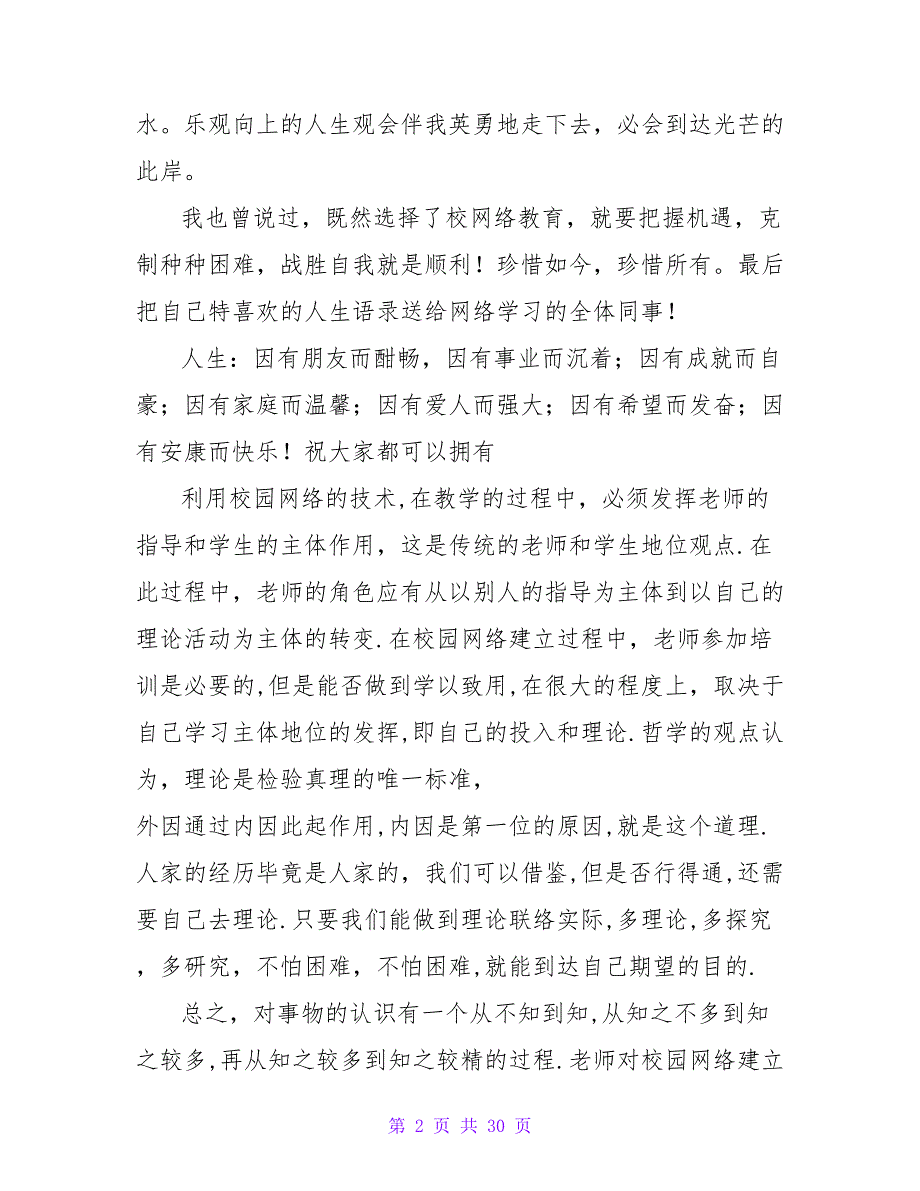 水。乐观向上的人生观会伴我英勇地走下去，必会到达光芒的
此岸。
我也曾说过，既然选择了校网络教育，就要把握机遇，克
制种种困难，战胜自我就是顺利！珍惜如今，珍惜所有。最后
把自己特喜欢的人生语录送给网络学习的全体同事！
人生：因有朋友而酣畅，因有事业而沉着；因有成就而自
豪；因有家庭而温馨；因有爱人而强大；因有希望而发奋；因
有安康而快乐！祝大家都可以拥有
利用校园网络的技术,在教学的过程中，必须发挥老师的
指导和学生的主体作用，这是传统的老师和学生地位观点.在
此过程中，老师的角色应有从以别人的指导为主体到以自己的
理论活动为主体的转变.在校园网络建立过程中，老师参加培
训是必要的,但是能否做到学以致用,在很大的程度上，取决于
自己学习主体地位的发挥,即自己的投入和理论.哲学的观点认
为，理论是检验真理的唯一标准，
外因通过内因此起作用,内因是第一位的原因,就是这个道理.
人家的经历毕竟是人家的，我们可以借鉴,但是否行得通,还需
要自己去理论.只要我们能做到理论联络实际,多理论,多探究
，多研究，不怕困难，不怕困难,就能到达自己期望的目的.
总之，对事物的认识有一个从不知到知,从知之不多到知
之较多,再从知之较多到知之较精的过程.老师对校园网络建立
第 2 页 共 30 页